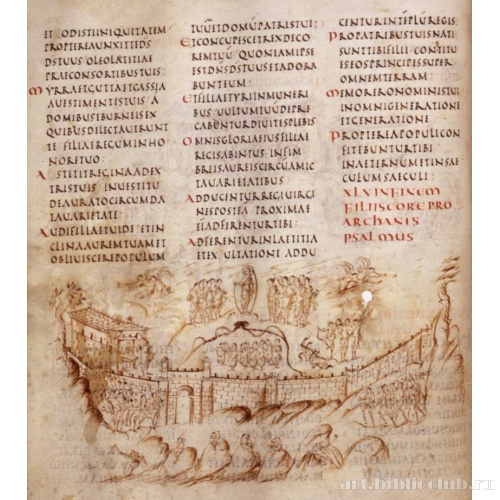 ET ODISTI INIQUITATEM
PROPTEREA UNXIT TE DS
DS TUUS OLEO LAETITIAE
PRAE CONSORTIBUS TUIS
MYRRA ET GUTTA ET CASSIA
A UESTIMENTIS TUIS A
DOMIBUS EBURNEIS EX
QUIBUS DELECTAUERUNT
TE FILIAE REGUM IN HO
NORE TUO
ADSTETIT REGINA A DEX
TRIS TUIS IN UESTITU
DEAURATO CIRCUMDA
TA UARIETATE
AUDI FILIA ET UIDE ET IN
CLINA AUREM TUAM ET
OBLIUISCERE POPULUM
TUŪ ET DOMŪ PATRIS TUI
ET CONCUPISCET REX DECO
REM TUŪ QUONIAM IPSE
EST DNS DS TUUS ET ADORA
BUNT EUM
ET FILIAE TYRI IN MUNERI
BUS UULTUM TUŪ DEPRE
CABUNTUR DIUITES PLEBIS
OMNIS GLORIA EIUS FILIAE
REGIS AB INTUS IN FIM
BREIS AUREIS CIRCUMAMIC
TA UARIETATIBUS
ADDUCENTUR REGI UIRGI
NES POST EA PROXIMAE
EIUS ADFERENTUR TIBI
ADFERENTUR IN LAETITIA
ET EXULTATIONE ADDU
CENTUR IN TEMPLŪ REGIS
PRO PATRIBUS TUIS NATI
SUNT TIBI FILII CONSTITUES
EOS PRINCIPES SUPER
OMNEM TERRAM
MEMOR ERO NOMINIS TUI
IN OMNI GENERATIONE
ET GENERATIONE
PROPTEREA POPULI CON
FITEBUNTUR TIBI
IN AETERNUM ET IN SAE
CULUM SAECULI
XLV IN FINEM
FILIIS CORE PRO
ARCHANIS
PSALMUS
art.biblioclub.ru